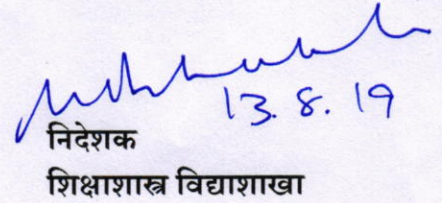 13.8.19
निदेशक
शिक्षाशास्त्र विद्याशाखा